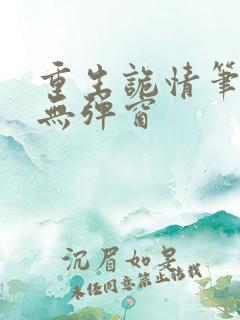 重生詭情筆
無彈窗
沉眉如吴
未经同意禁止转载